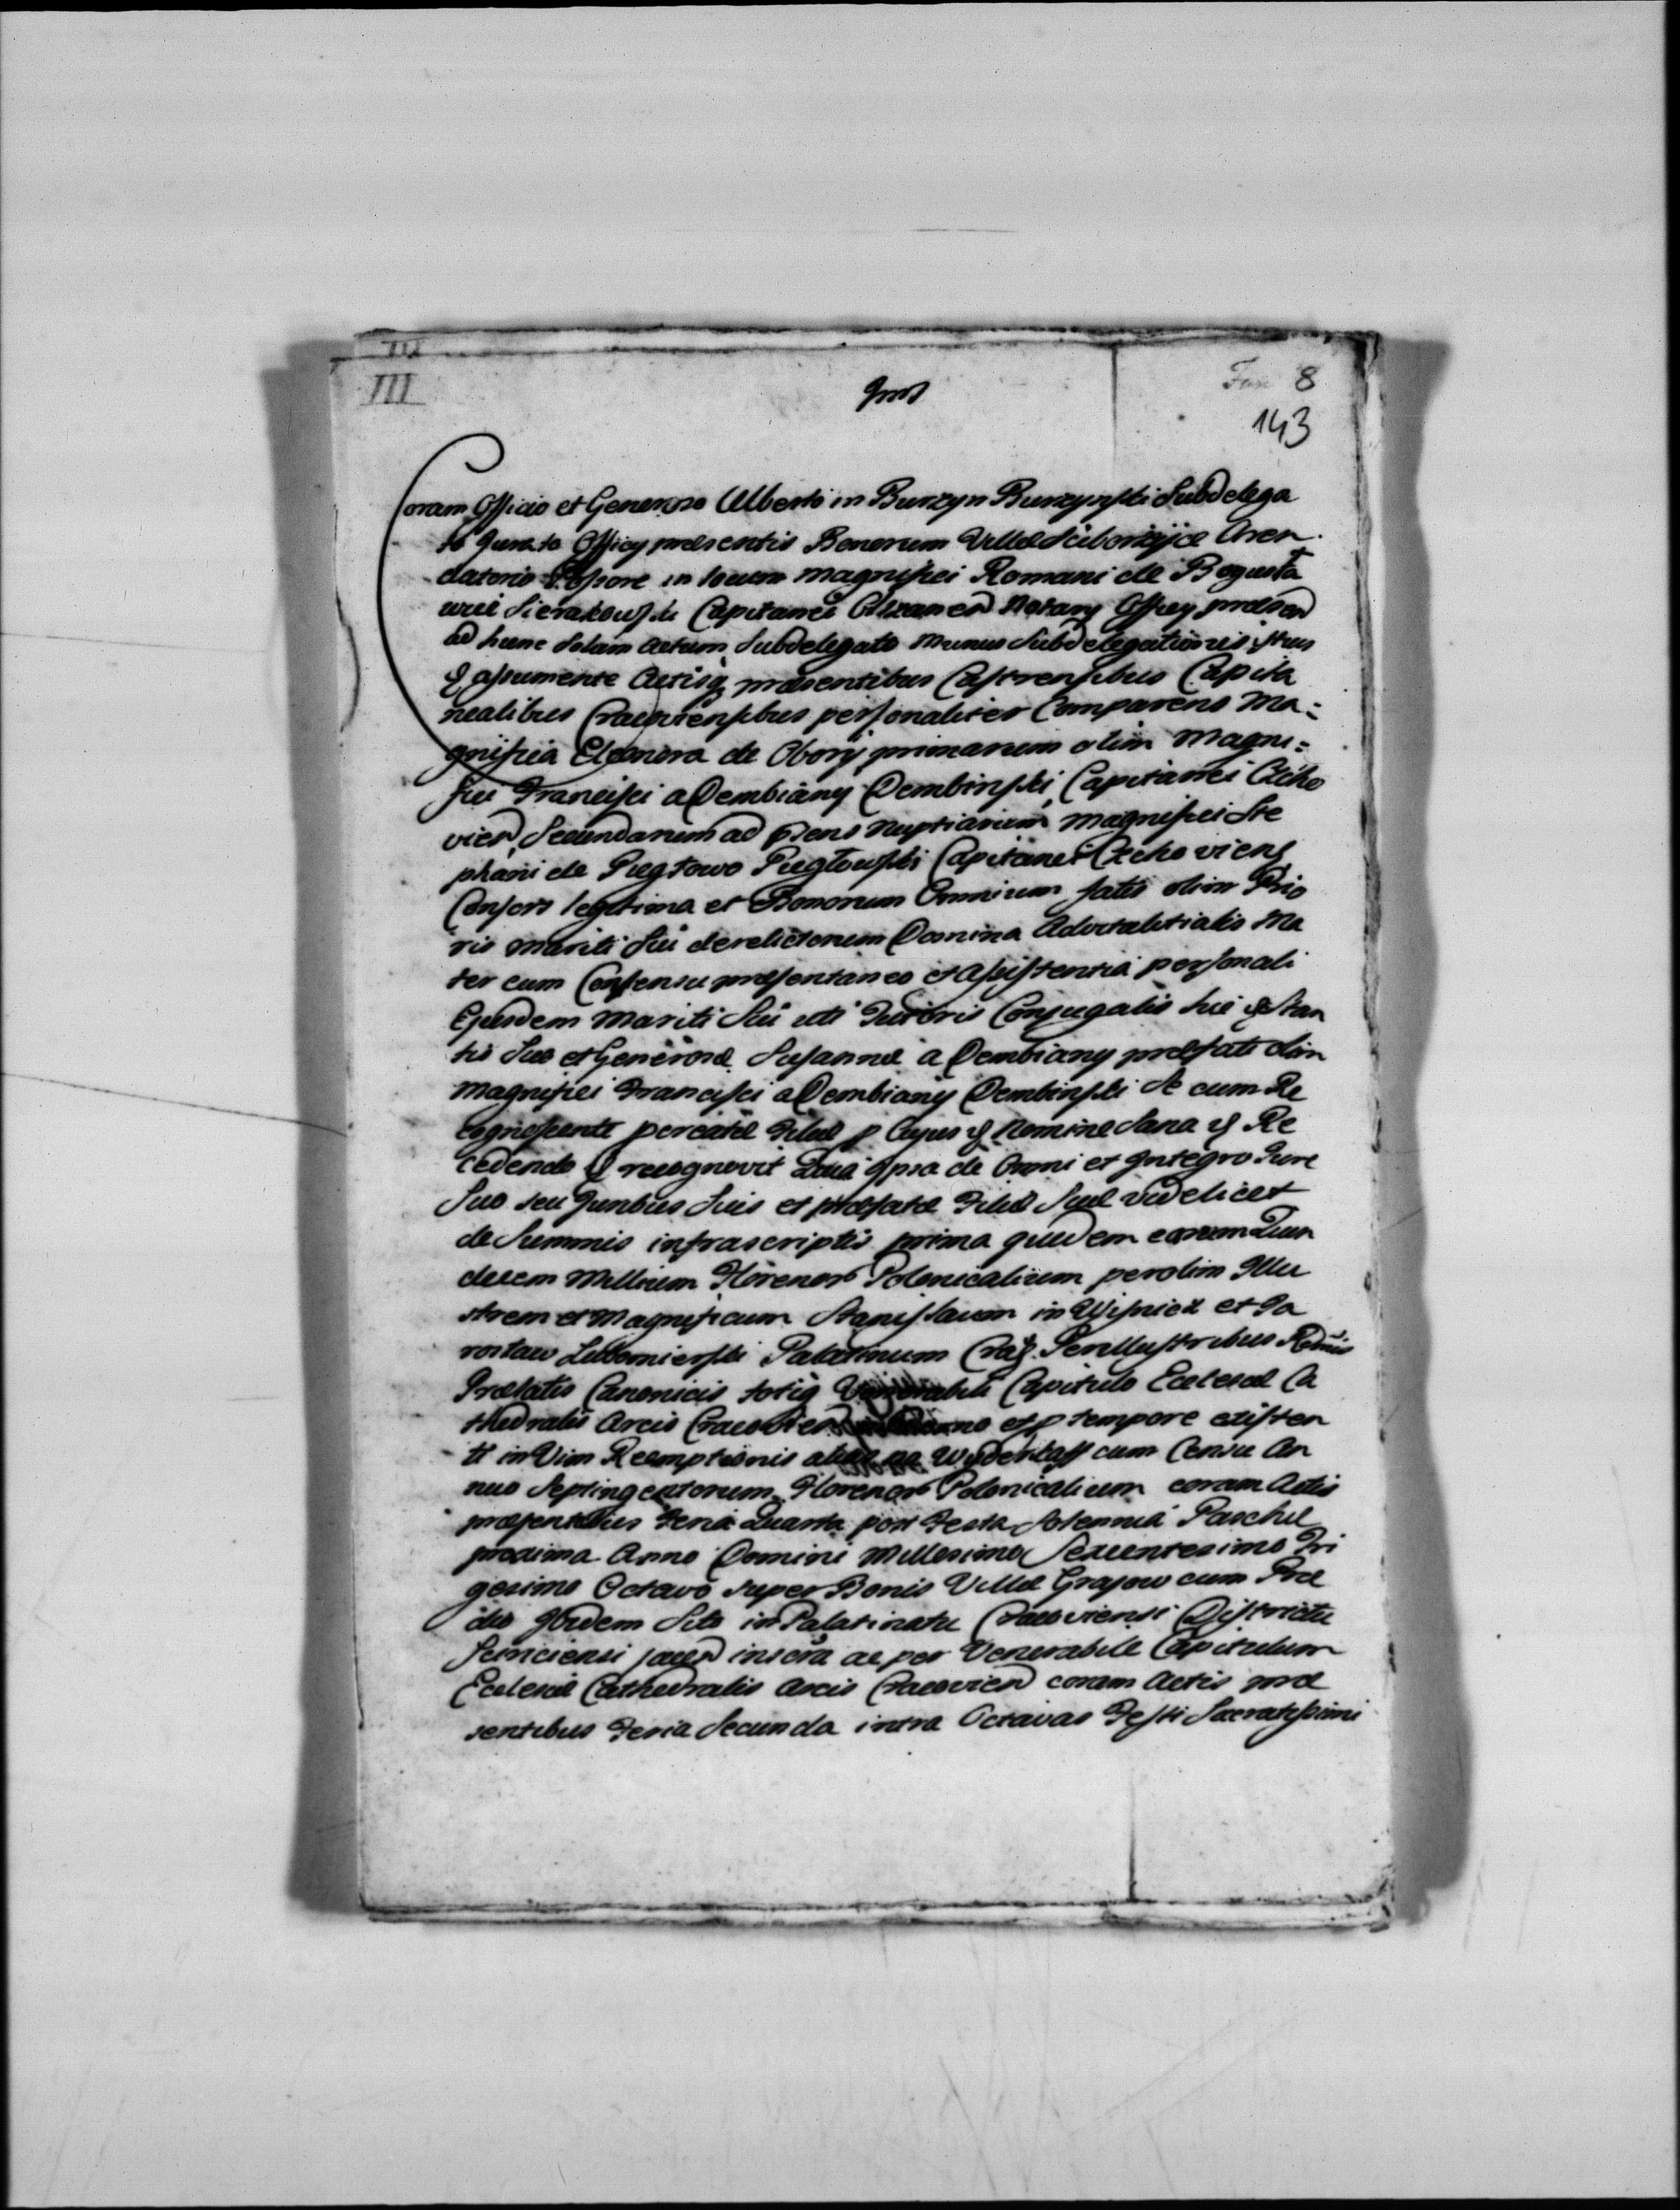 III
8
143
Coram Officio et Generoso Alberto in Burzyn Burzynski Subdelega
to Jurato Officij praesentis Bonorum Villae Sciborzÿce Aren
datorio Possore in locum Magnifici Romani de Bogusła
wice Sierakowski Capitanei Notarij Officij praesen
ad hunc solum Actum Subdelegato munus Subdelegationis istius
assumente Actisq praesentibus Castrensibus Capita
nealibus Cracoviensibus personaliter Comparens Ma:
gnifica Eleonora de Oborÿ primarum olim Magni:
fici Francisci a Dembiany Dembinski Capitanei
vien Secundarum ad praens Nuptiarum Magnifici Ste
phani de Pegłowo Pegłowski Capitanei
Consors legitima et Bonorum Omnium fatis olim Prio
ris Mariti sui derelictorum Domina Advitalitialis Ma
ter cum Consensu praesentaneo et Assistentia personali
Ejusdem Mariti sui uti Tutoris Conjugalis
suo et Generosae Susannae a Dembiany praefati olim
Magnifici Francisci a Dembiany Dembinski se cum Re
cognoscente percarae Filiae p Cujus Nomine Sana Re
cedendo recognovit Quia Ipsa de Omni et Integro Jure
Suo seu Juribus Suis et praefatae Filiae Suae videlicet
de Summis infrascriptis prima quidem earum
decem Millium Florenor Polonicalium per olim Illu
strem et Magnificum Stanislaum in Wisnicz et Ja
roslaw Lubomierski Palatinum Crac Perillustribus Rdmis
Praelatis Canonicis totiq Venerabili Capitulo Ecclesiae Ca
thedralis Arcis Cracovien et p tempore existen
ti in Vim Reemptionis alias na Wyderkaff cum Censu An
nuo Septingentorum Florenor Polonicalium coram Actis
praesentibus Feria Quarta post Festa Solennia Paschae
proxima Anno Domini Millesimo Sexcentesimo Tri
gesimo Octavo super Bonis Villae Grajow cum Prae
dio Ibidem Sito in Palatinatu Cracoviensi Districtu
jacen inscra ac per Venerabile Capitulum
Ecclesiae Cathedralis Arcis Cracovien coram Actis prae
sentibus Feria Secunda intra Octavas Festi Sacratissimi